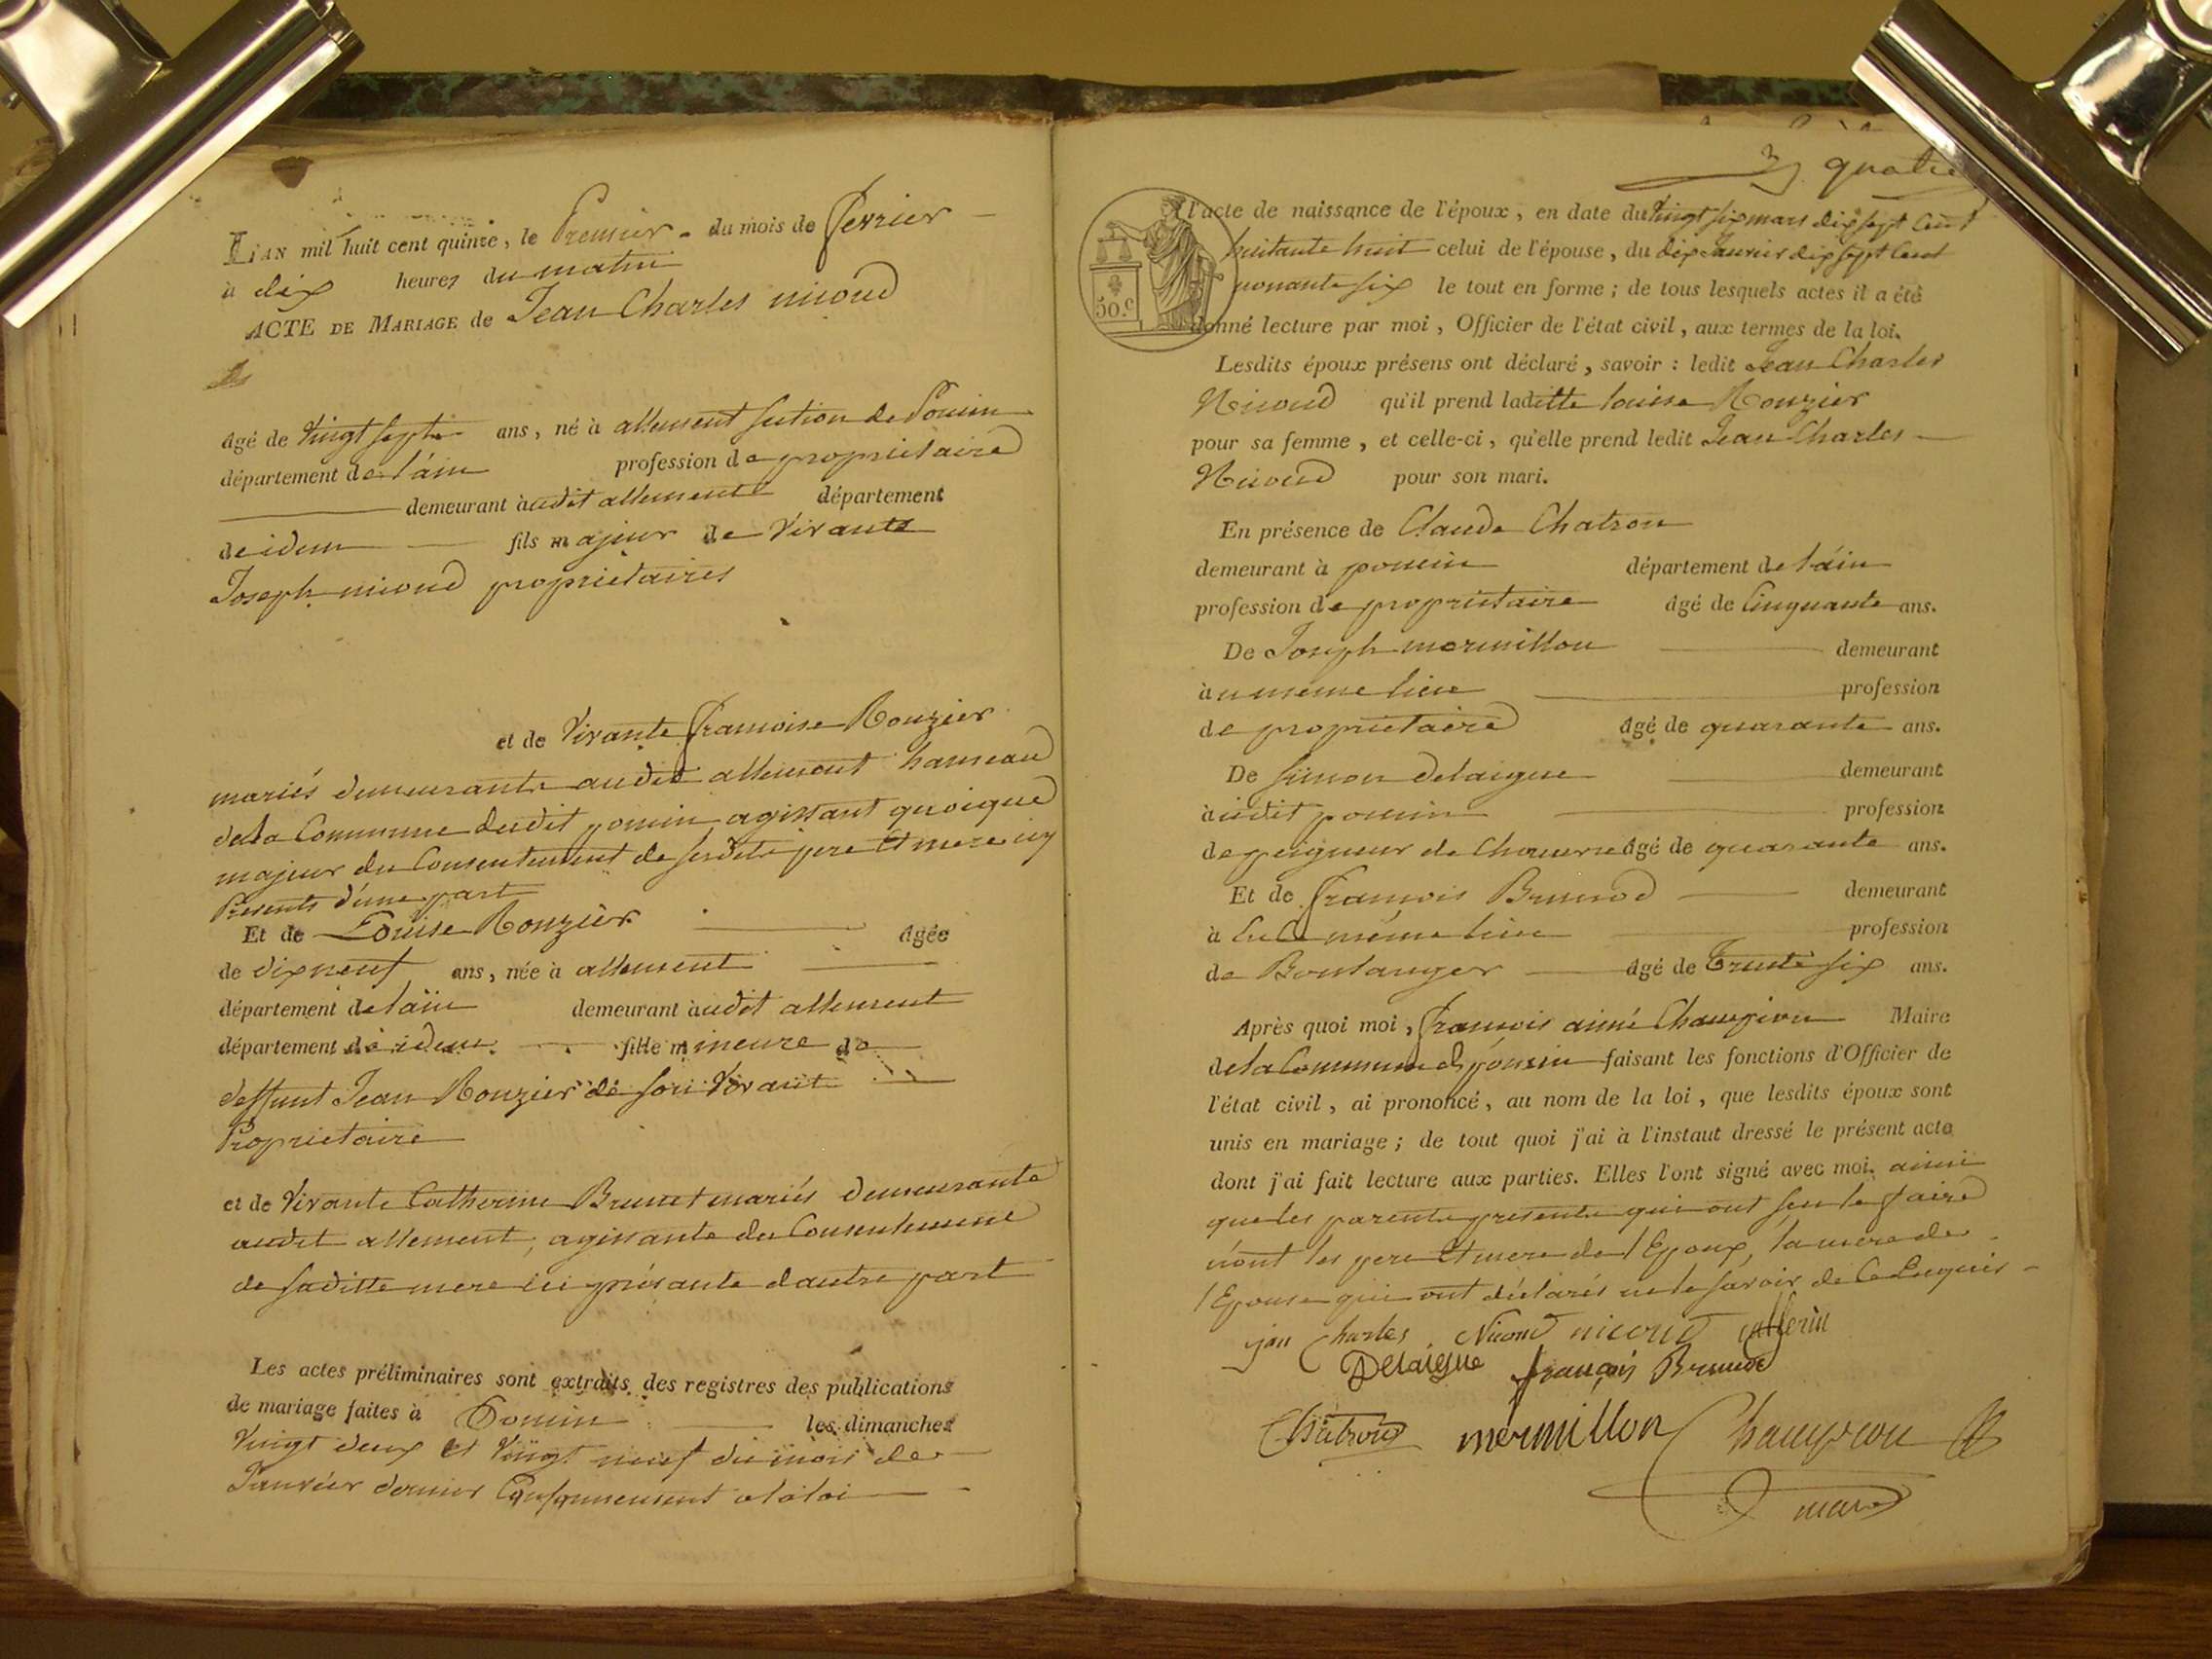 L'AN mil huit cent quinze, le Premier - du mois de fevrier
à dix heures du matin
ACTE DE MARIAGE de Jean Charles nicoud
âgé de vingt sept ans, né à allement section de Poncin
département de l'ain profession de propriétaire
demeurant àudit allement département
de idem fils majeur de vivants
Joseph nicoud propriétaires
et de vivante françoise Rouzier
mariés demeurants audit allement hameau
de la Commune dudit poncin agissant quoique
majeur du Consentement de sesdits pere et mere icy
Presents d'une part
Et de Louise Rouzier âgée
de dix neuf ans, née à allement
département de l'ain demeurant àudit allement
département de idem fille mineure de
deffunt Jean Rouzier de son vivant
Propriétaire
et de vivante Catherine Brunet mariés demeurante
audit allement, agissante du Consentement
de saditte mere ici présante d'autre part
Les actes préliminaires sont extraits des registres des publications
de mariage faites à Poncin les dimanches
vingt deux et vingt neuf du mois de
Janvier dernier Conformement a la loi
quatre
l'acte de naissance de l'époux, en date du vingt six mars dix sept cent
huitante huit celui de l'épouse, du dix Janvier dix sept Cent
50.c
nonante six le tout en forme; de tous lesquels actes il a été
donné lecture par moi, Officier de l'état civil, aux termes de la loi.
Lesdits époux présens ont déclaré, savoir: ledit Jean Charles
Nicoud qu'il prend laditte louise Rouzier
pour sa femme, et celle-ci, qu'elle prend ledit Jean Charles
Nicoud pour son mari.
En présence de Claude Chatron
demeurant à poncin département de l'ain
profession de propriétaire âgé de Cinquante ans.
De Joseph mermillon demeurant
àu meme lieu profession
de propriétaire âgé de quarante ans.
De simon delaigue demeurant
àudit poncin profession
de peigneur de Chanvre âgé de quarante ans.
Et de françois Brunod demeurant
à en Ce même lieu profession
de Boulanger âgé de Trente six ans.
Après quoi moi, françois aimé Champion Maire
de la Commune de poncin faisant les fonctions d'Officier de
l'état civil, ai prononcé, au nom de la loi, que lesdits époux sont
unis en mariage; de tout quoi j'ai à l'instant dressé le présent acte
dont j'ai fait lecture aux parties. Elles l'ont signé avec moi. ainsi
que les parents presents qui ont seu le faire
non les pere et mere de l'Epoux, la mere de
l'Epouse qui ont déclarés ne le savoir de Ce Enquis
jan Charles Nicoud nicoud
Delaigue françois Brunod
Chatron mermillon Champion
maire